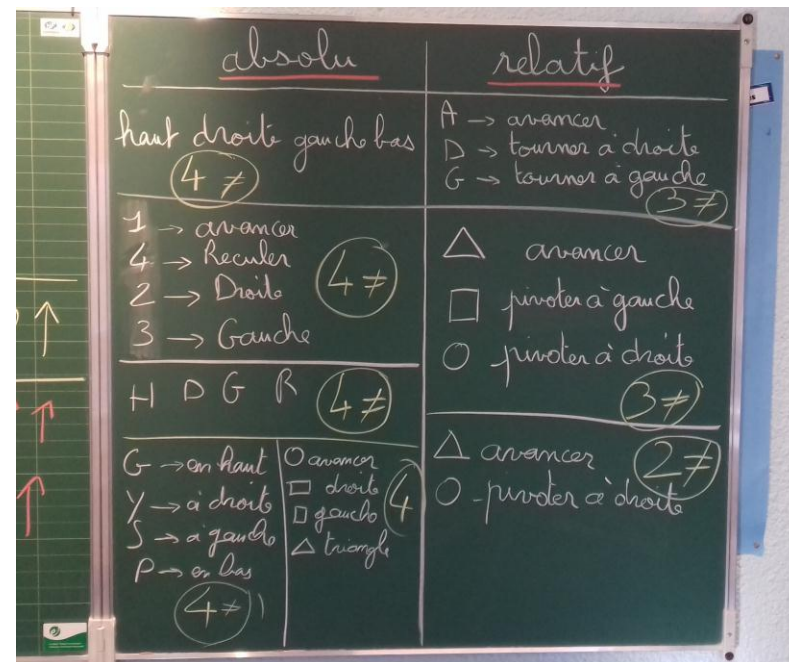 absolu
haut droite gauche bas
4 ≠
1 → avancer
4 → Reculer
2 → Droite
3 → Gauche
4 ≠
H D G R 4 ≠
G → en haut
Y → à droite
S → a gauche
P → en bas
4 ≠
○ avancer
□ droite
□ gauche
△ triangle
4
relatif
A → avancer
D → tourner à droite
G → tourner à gauche
3 ≠
△ avancer
□ pivoter à gauche
○ pivoter à droite
3 ≠
△ avancer
2 ≠
○ - pivoter à droite